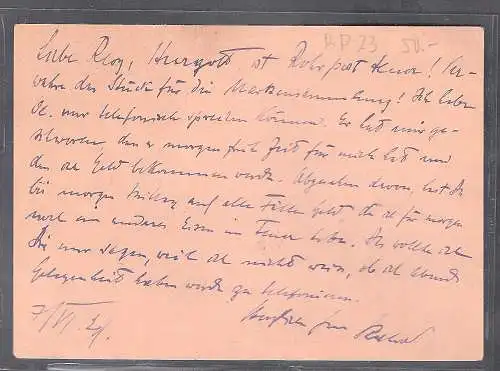 RP 23 50.-
Liebe Resy, Herrgott ist Rohrpost teuer! Ver-
wahre das Stück für die Markensammlung! Ich habe
Oe. nur telefonisch sprechen können. Er hat mir ge-
schworen, dass er morgen früh Zeit für mich hat und
den Geld bekommen werde. Abgesehen davon, hast Du
bis morgen Mittag auf alle Fälle Geld, da ich für morgen
noch ein anderes Eisen im Feuer habe. Ich wollte
Dir nur sagen, weil ich nicht weiss, ob ich abends
Gelegenheit haben werde zu telefonieren.
Herzlichst
7/VI.